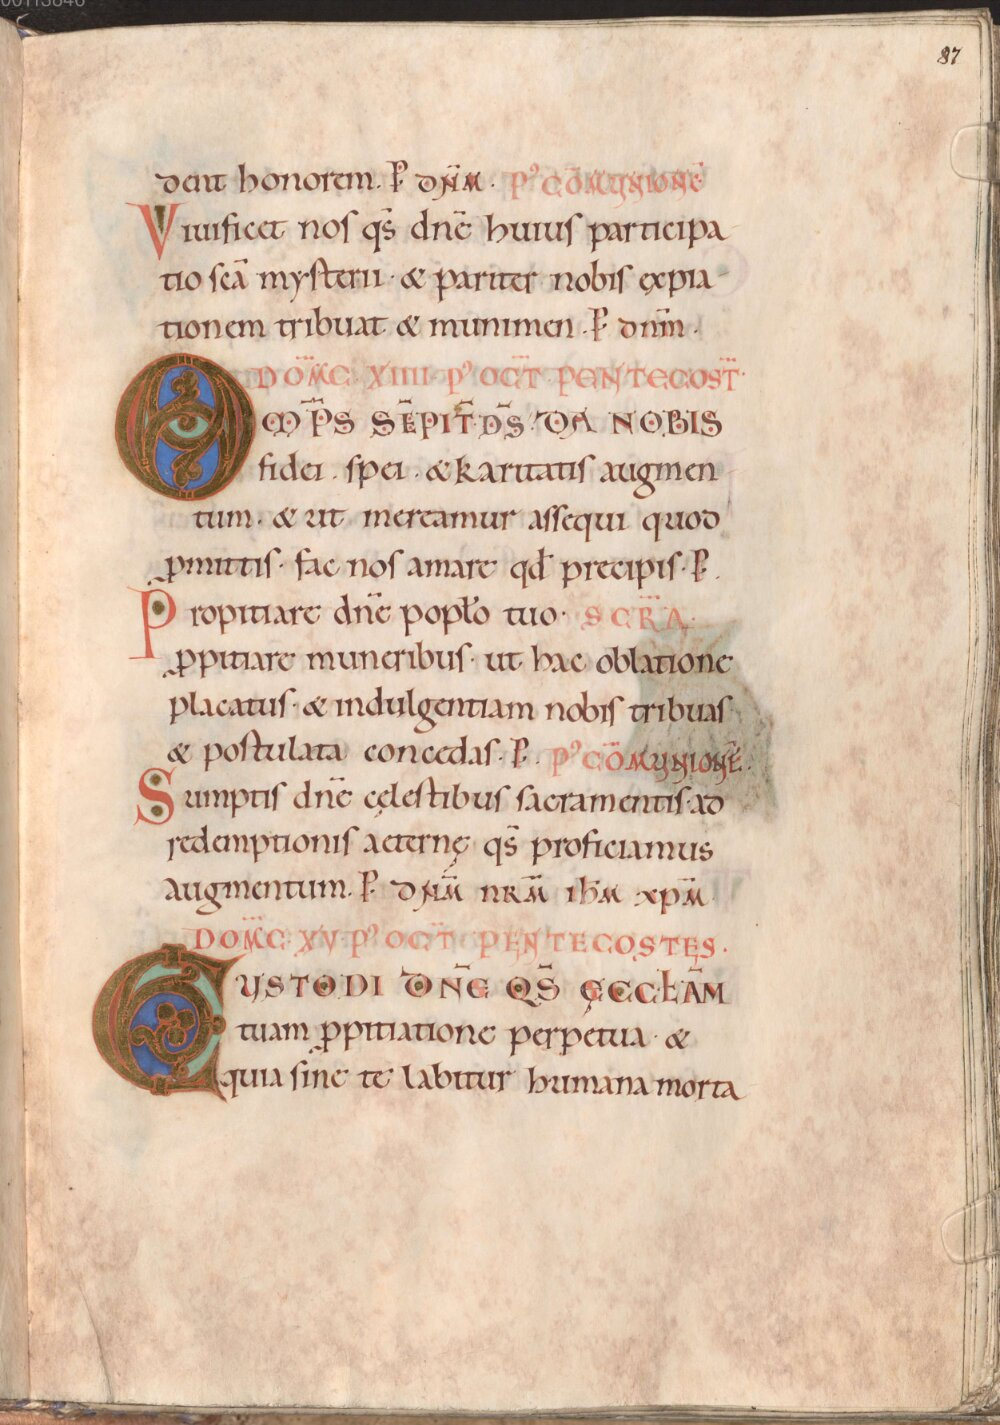 87
dent honorem. P̄ dn̄m. p' cōmunionē
Viuificet nos qs̄ dn̄e huius participa
tio sc̄a mysterii · & pariter nobis ęxpia
tionem tribuat & munimen. P̄ dnm̄.
DOM̄C XIIII P' OCT̄ PENTECOST̄
OM̄PS SĒPIT̄ DS̄ DA NOBIS
fidei. spei. & karitatis augmen
tum. & ut mereamur assequi quod
ꝓmittis. fac nos amare qd̄ precipis. P̄.
Propitiare dn̄e popl̄o tuo. SECR̄A
ꝓpitiare muneribus. ut hac oblatione
placatus. & indulgentiam nobis tribuas
& postulata concedas. P̄. p' cōmunionē.
Sumptis dn̄e cęlestibus sacramentis. ad
redemptionis aeternę qs̄ proficiamus
augmentum. P̄. dn̄m nr̄m ih̄m xp̄m
DOM̄C XV P' OCT̄ PENTECOSTES.
CUSTODI DN̄E QS̄ ĘCCL̄AM
tuam ꝓpitiatione perpetua. &
quia sine te labitur humana morta